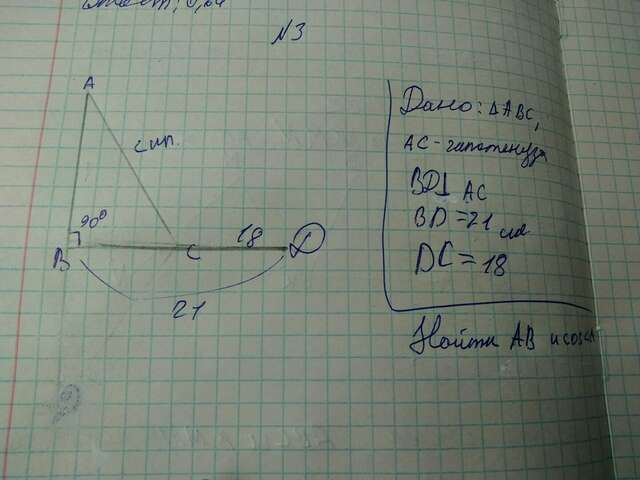 Ответ: 0,64
№3
A
гип.
90°
B
C
18
D
21
Дано: ΔABC,
AC - гипотенуза
BD⊥AC
BD = 21 см
DC = 18
Найти AB и cos∠A